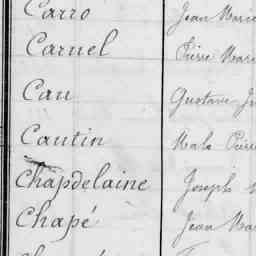 Carro Jean Marie
Caruel Pierre Marie
Cau Gustave
Cautin Malo Pierre
Chapdelaine Joseph
Chapé Jean Mar